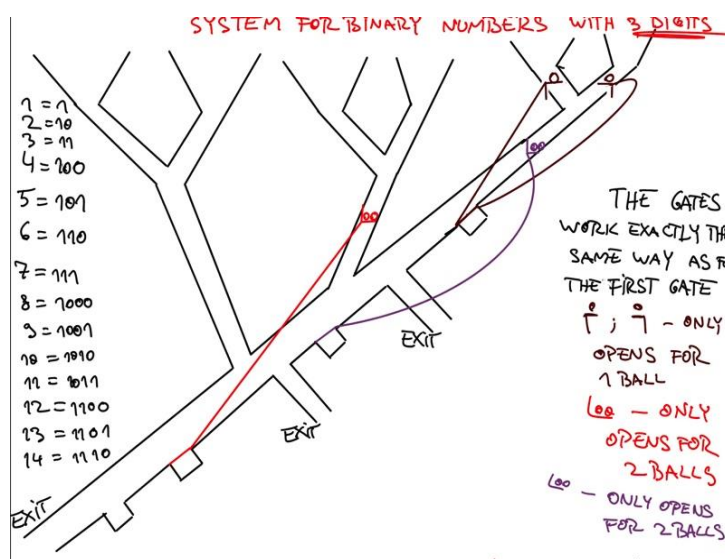 SYSTEM FOR BINARY NUMBERS WITH 3 DIGITS
1 = 1
2 = 10
3 = 11
4 = 100
5 = 101
6 = 110
7 = 111
8 = 1000
9 = 1001
10 = 1010
11 = 1011
12 = 1100
13 = 1101
14 = 1110
THE GATES
WORK EXACTLY TH
SAME WAY AS F
THE FIRST GATE
; - ONLY
OPENS FOR
1 BALL
- ONLY
OPENS FOR
2 BALLS
- ONLY OPENS
FOR 2 BALLS
EXIT
EXIT
EXIT